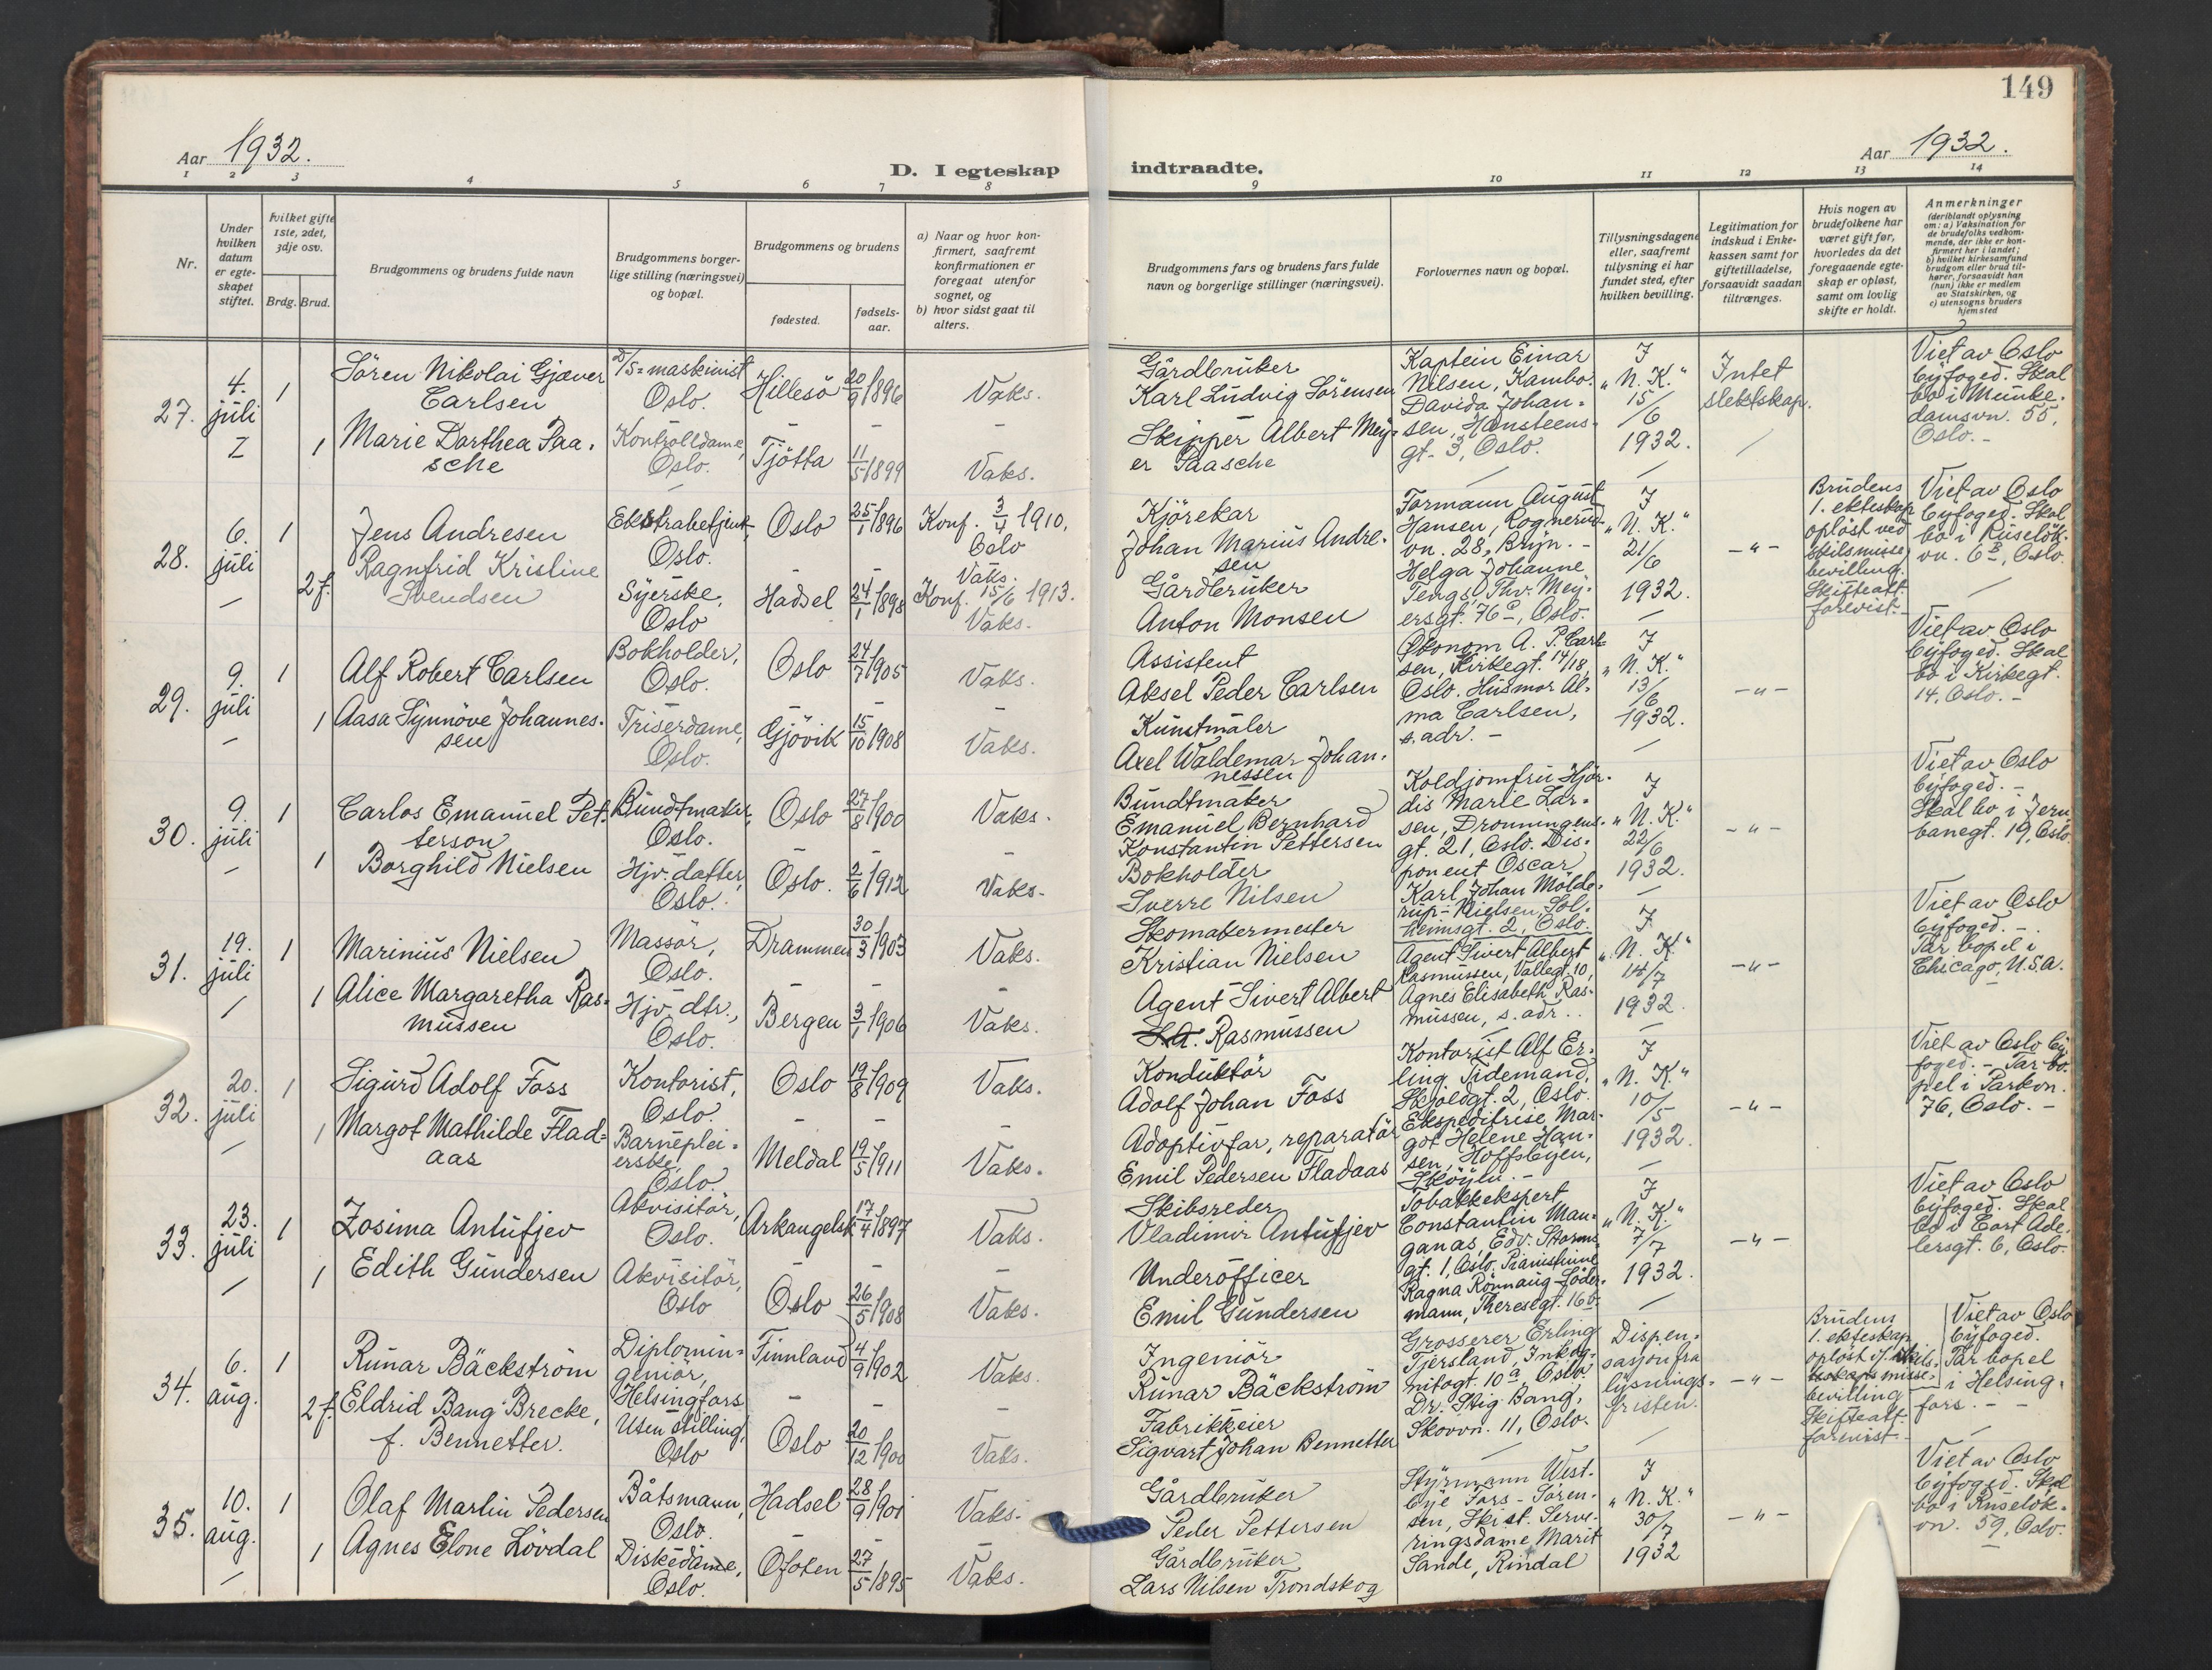 149
Aar 1932.
D. I egteskap indtraadte.
Aar 1932.
1 2 3 4 5 6 7 8 9 10 11 12 13 14
Nr.
Under hvilken datum er egteskapet stiftet.
Hvilket gifte 1ste, 2det, 3dje osv.
Brdg. Brud.
Brudgommens og brudens fulde navn
Brudgommens borgerlige stilling (næringsvei) og bopæl.
Brudgommens og brudens
fødested.
fødselsaar.
a) Naar og hvor konfirmert, saafremt konfirmationen er foregaat utenfor sognet, og
b) hvor sidst gaat til alters.
Brudgommens fars og brudens fars fulde navn og borgerlige stillinger (næringsvei).
Forlovernes navn og bopæl.
Tillysningsdagene eller, saafremt tillysning ei har fundet sted, efter hvilken bevilling.
Legitimation for indskud i Enkekassen samt for giftetilladelse, forsaavidt saadan tiltrænges.
Hvis nogen av brudefolkene har været gift før, hvorledes da det foregaaende egteskap er opløst, samt om lovlig skifte er holdt.
Anmerkninger
(deriblandt oplysning om: a) Vaksination for de brudefolks vedkommende, der ikke er konfirmert her i landet; b) hvilket kirkesamfund brudgom eller brud tilhører, forsaavidt han (hun) ikke er medlem av Statskirken, og c) utensogns bruders hjemsted
27.
4. juli
1
Sören Nikolai Gjæver Carlsen
D/S=maskinist Oslo.
Hillesö
20/9 1896
Vaks.
Gårdbruker
Karl Ludvig Sörensen
Kaptein Einar Nilsen, Kambo. Davida Johansen, Hansteensgt. 3, Oslo.
I „N. K.“ 15/6 1932.
Intet slektskap.
Viet av Oslo byfoged. Skal bo i Munkedamsvn. 55, Oslo. -
1
Marie Dorthea Paasche
Kontrolldame, Oslo.
Tjötta
11/5 1899
Vaks.
Skipper Albert Meyer Paasche
28.
6. juli
1
Jens Andresen
Ekstrabetjent, Oslo.
Oslo
25/1 1896
Konf. 3/4 1910. Oslo
Vaks.
Kjörekar
Johan Marius Andresen
Formann August Hansen, Rognerudvn. 28, Bryn. - Helga Johanne Tengs, Thv. Meyersgt. 76 a, Oslo.
I „N. K.“ 21/6 1932.
- " -
Brudens 1. ekteskap oplöst ved skilsmissebevilling. Skifteatt. forevist. -
Viet av Oslo byfoged. Skal bo i Ruselökvn. 6 B, Oslo.
2 f.
Ragnfrid Kristine Svendsen
Syerske, Oslo
Hadsel
24/1 1898
Konf. 15/6 1913.
Vaks.
Gårdbruker
Anton Monsen
29.
9. juli
1
Alf Robert Carlsen
Bokholder, Oslo.
Oslo
24/7 1905
Vaks.
Assistent
Aksel Peder Carlsen
Ökonom A. P. Carlsen, Kirkegt. 14/18, Oslo. Husmor Alma Carlsen, s. adr. -
I „N. K.“ 13/6 1932.
- " -
Viet av Oslo byfoged. Skal bo i Kirkegt. 14, Oslo. -
1
Aasa Synnöve Johannessen
Friserdame, Oslo.
Gjövik
15/10 1908
Vaks.
Kunstmaler
Axel Waldemar Johannessen
30.
9. juli
1
Carlos Emanuel Petterson
Bundtmaker, Oslo.
Oslo
27/8 1900
Vaks.
Bundtmaker
Emanuel Bernhard Konstantin Pettersen
Koldjomfru Hjördis Marie Larsen, Dronningensgt. 21, Oslo. Disponent Oscar Karl Johan Mölderup-Nielsen, Solheimsgt. 2, Oslo.
I „N. K.“ 22/6 1932.
- " -
Viet av Oslo byfoged. - Skal bo i Jernbanegt. 19, Oslo.
1
Borghild Nielsen
Hjv. datter, Oslo.
Oslo.
2/6 1912
Vaks.
Bokholder
Sverre Nilsen
31.
19. juli
1
Marinius Nielsen
Massör, Oslo.
Drammen
30/3 1903
Vaks.
Skomakermester
Kristian Nielsen
Agent Sivert Albert Rasmussen, Vallegt. 10, Agnes Elisabeth Rasmussen, s. adr. .
I „N. K.“ 14/7 1932.
- " -
Viet av Oslo byfoged. - . Tar bopel i Chicago, U.S.A.
1
Alice Margaretha Rasmussen
Hjv. dtr., Oslo.
Bergen
3/1 1906
Vaks.
Agent Sivert Albert Rasmussen
32.
20. juli
1
Sigurd Adolf Foss
Kontorist, Oslo.
Oslo
19/8 1909
Vaks.
Konduktör
Adolf Johan Foss
Kontorist Alf Erling Tidemand, Skjoldgt. 2, Oslo. Ekspeditrise Margot Helene Hansen, Hoffsbyen, Sköyen. -
I „N. K.“ 10/5 1932.
- " -
Viet av Oslo byfoged. - Tar bopel i Parkvn. 76, Oslo. -
1
Margot Mathilde Fladaas
Barnepleierske, Oslo.
Meldal
19/5 1911
Vaks.
Adoptivfar, reparatör
Emil Pedersen Fladaas
33.
23. juli
1
Zosima Antufjev
Akvisitör, Oslo.
Arkangelsk
17/4 1897
Vaks.
Skibsreder
Vladimir Antufjev
Tobakkekspert Constantin Manganas, Edv. Stormsgt. 1, Oslo. Pianistinne Ragna Rönnaug Södermann, Theresegt. 16 b.
I „N. K.“ 7/7 1932.
- " -
Viet av Oslo byfoged. Skal bo i Cort Adelersgt. 6, Oslo.
1
Edith Gundersen
Akvisitör, Oslo
Oslo
26/5 1908
Vaks.
Underofficer
Emil Gundersen
34.
6. aug.
1
Runar Bäckström
Diplomingeniör, Helsingfors
Finnland
4/9 1902
Vaks.
Ingeniör
Runar Bäckström
Grosserer Erling Tjersland, Inkognitogt. 10 a, Oslo. Dr. Stig Bang, Skovvn. 11, Oslo.
Dispensasjon fra lysningsfristen.
- " -
Brudens 1. ekteskap oplöst v/ skilsmissebevilling Skifteatt. forevist. -
Viet av Oslo byfoged. Tar bopel i Helsingfors. - -
2 f.
Eldrid Bang Brecke, f. Bennetter.
Uten stilling, Oslo
Oslo
20/12 1900
Vaks.
Fabrikkeier
Sigvart Johan Bennetter
35.
10. aug.
1
Olaf Martin Pedersen
Båtsmann, Oslo.
Hadsel
28/9 1901
Vaks.
Gårdbruker
Peder Pettersen
Styrmann Westbye Fors-Sörensen, Ski st. Serveringsdame Marit Sande, Rindal
I „N. K.“ 30/7 1932
- " -
Viet av Oslo byfoged. Skal bo i Ruselökvn. 59, Oslo.
1
Agnes Elone Lövdal
Diskedame, Oslo.
Ofoten
27/5 1895
Vaks.
Gårdbruker
Lars Nilsen Trondskog